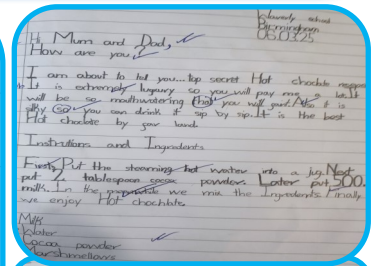 Waverly school
Birmingham
06.03.25
Hi, Mum and Dad,
How are you?
I am about to tell you... top secret Hot choclate
It is extremely luxury so you will pay me a lot. It
will be so mouthwatering that you will faint. Also it is
silky so you can drink it sip by sip. It is the best
Hot choclate by your hand.
Instrutions and Ingredents
Firstly, Put the steaming hot water into a jug. Next
put 2 tablespoon cocoa powder. Later put 500
milk. In the meanwhile we mix the Ingredents. Finally
we enjoy Hot chochlate.
Milk
Water
Cocoa powder
Marshmellows